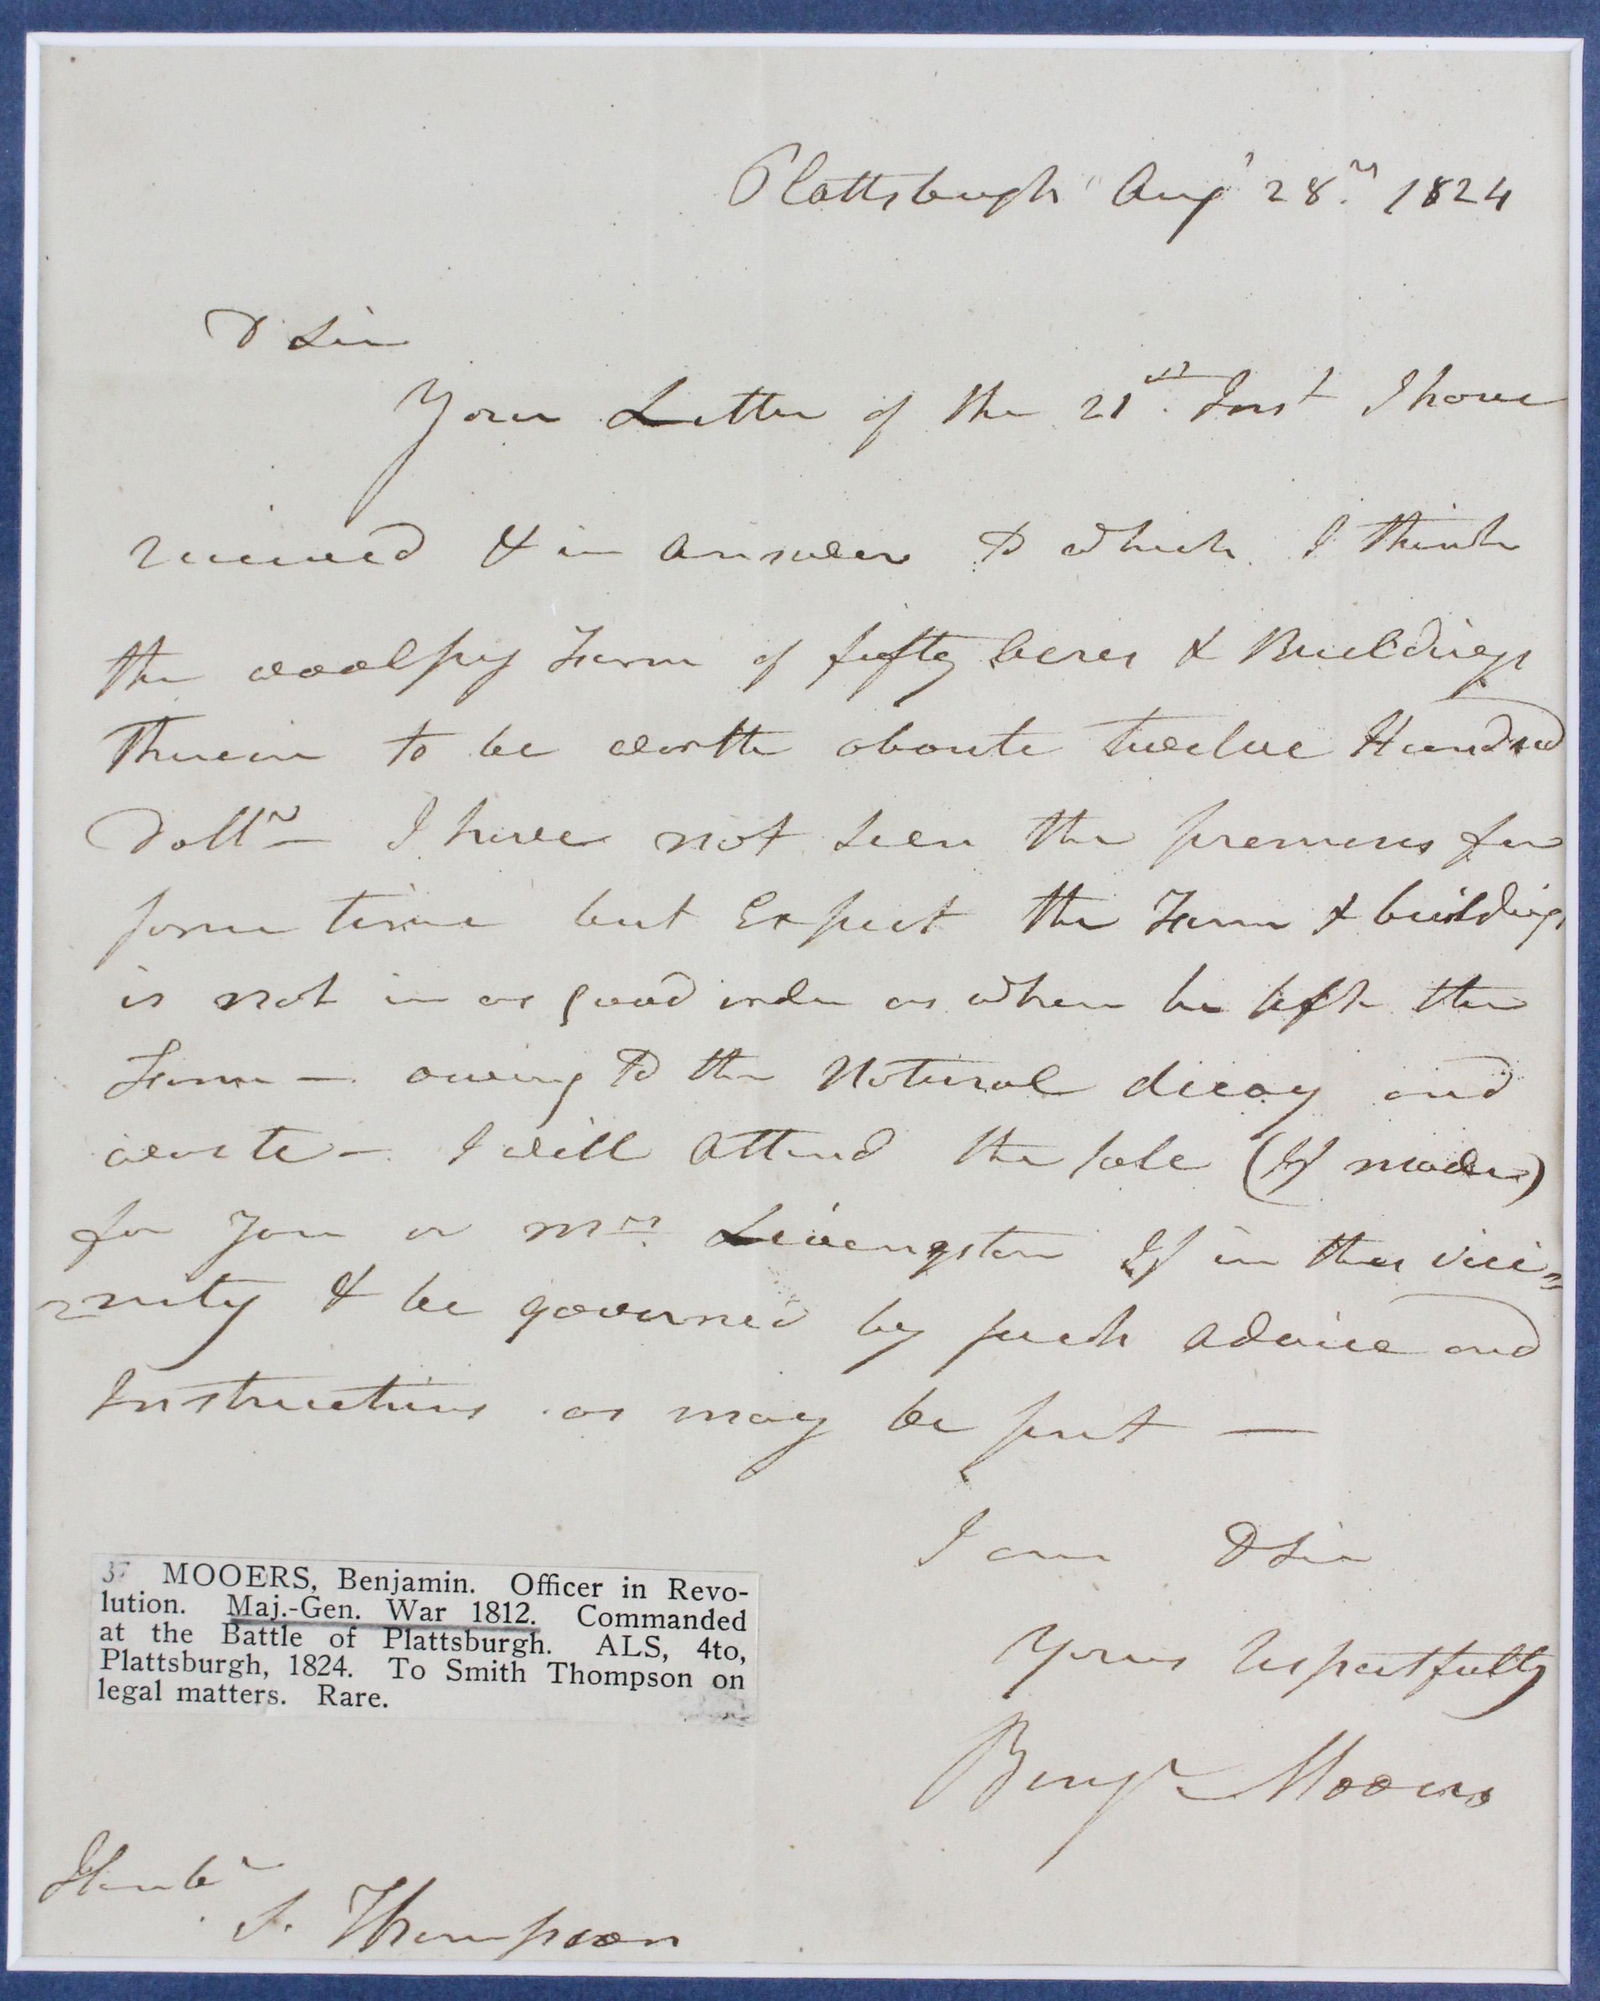 Plattsburgh Augt 28th 1824
D Sir
Your Letter of the 21st Inst I have
received & in answer to which I think
the Woolsey Farm of fifty Acres & Buildings
Therein to be worth aboute twelve Hundred
Dollrs — I have not seen the premises for
some time but Expect the Farm & buildings
is not in as good order as when he left the
Farm — owing to the Natural decay and
waste — I will Attend the sale (If made)
for you or Mrs Livengston If in this vici=
=nity & be governed by such advice and
Instructions as may be sent —
I am D Sir
Yours Respectfully
Benjn Mooers
37 MOOERS, Benjamin. Officer in Revo-
lution. Maj.-Gen. War 1812. Commanded
at the Battle of Plattsburgh. ALS, 4to,
Plattsburgh, 1824. To Smith Thompson on
legal matters. Rare.
S. Thompson